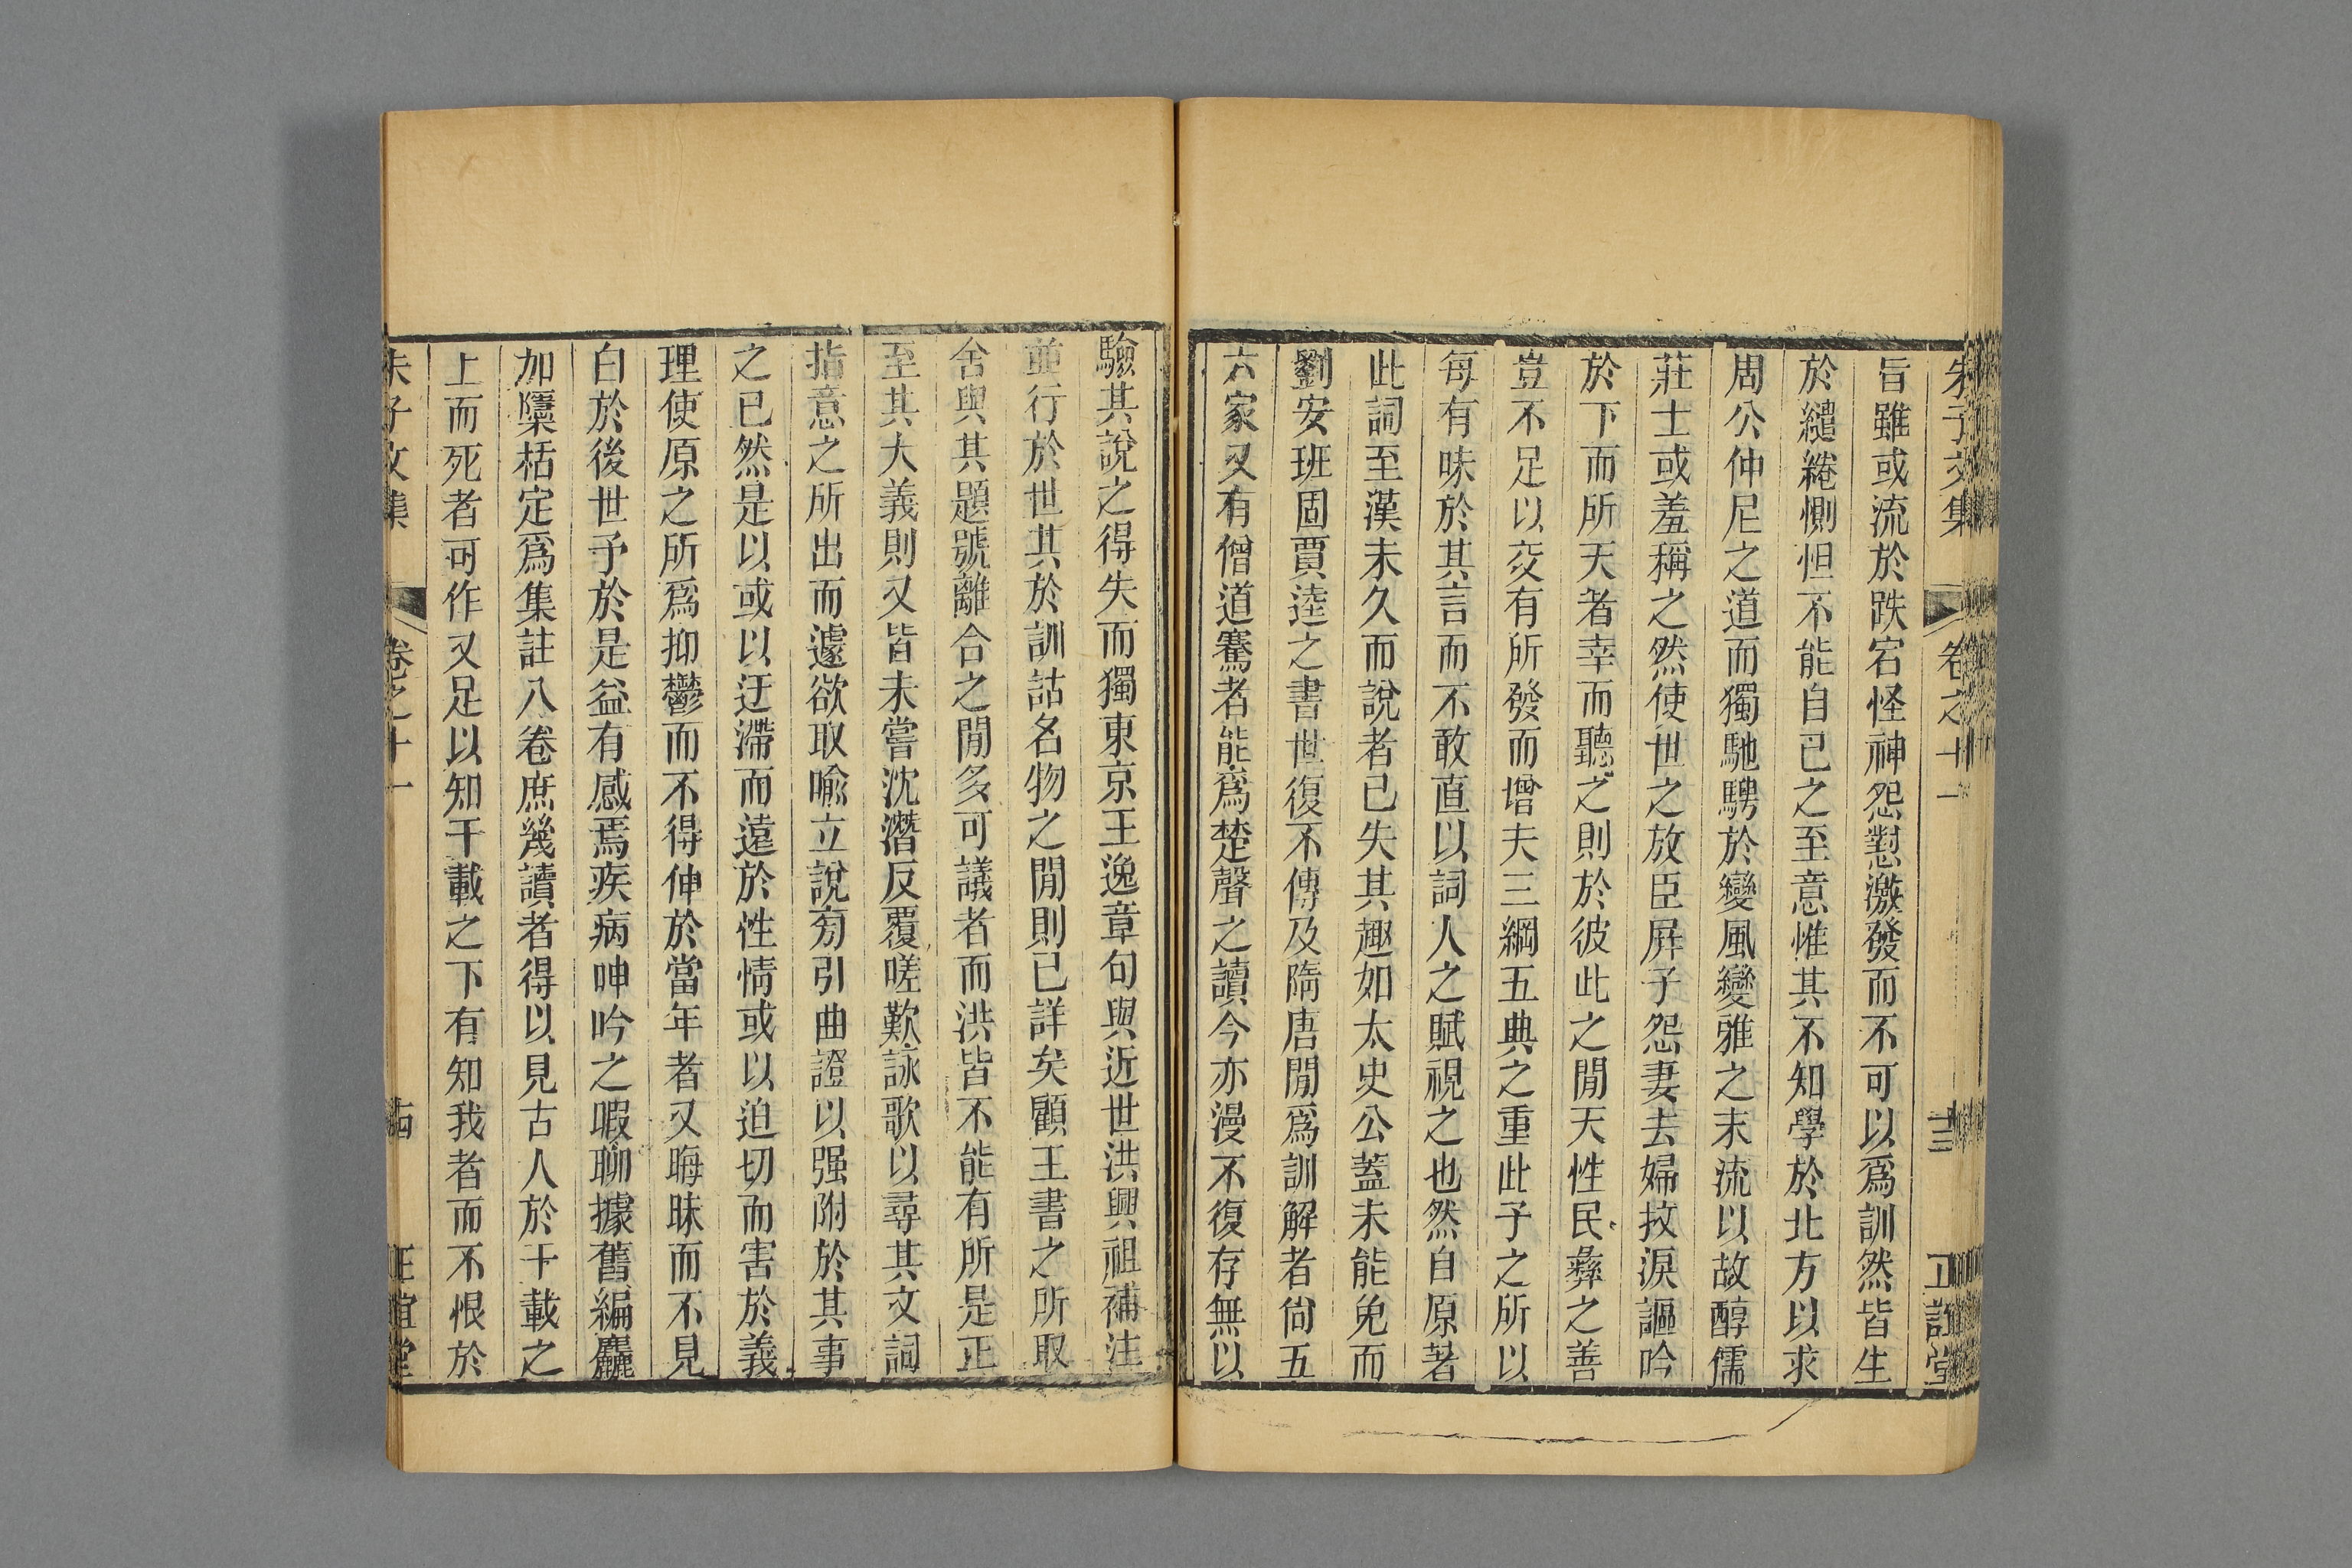 朱子文集 卷之十一 十三 正誼堂
旨雖或流於跌宕怪神怨懟激發而不可以爲訓然皆生
於繾綣惻怛不能自已之至意惟其不知學於北方以求
周公仲尼之道而獨馳騁於變風變雅之末流以故醇儒
莊士或羞稱之然使世之放臣屛子怨妻去婦抆淚謳吟
於下而所天者幸而聽之則於彼此之閒天性民彝之善
豈不足以交有所發而增夫三綱五典之重此予之所以
每有味於其言而不敢直以詞人之賦視之也然自原著
此詞至漢未久而說者已失其趣如太史公蓋未能免而
劉安班固賈逵之書世復不傳及隋唐閒爲訓解者尙五
六家又有僧道騫者能爲楚聲之讀今亦漫不復存無以
驗其說之得失而獨東京王逸章句與近世洪興祖補注
並行於世其於訓詁名物之閒則已詳矣顧王書之所取
舍與其題號離合之閒多可議者而洪皆不能有所是正
至其大義則又皆未嘗沈潛反覆嗟歎詠歌以尋其文詞
指意之所出而遽欲取喻立說旁引曲證以强附於其事
之已然是以或以迂滯而遠於性情或以迫切而害於義
理使原之所爲抑鬱而不得伸於當年者又晦昧而不見
白於後世予於是益有感焉疾病呻吟之暇聊據舊編麤
加檃栝定爲集註八卷庶幾讀者得以見古人於千載之
上而死者可作又足以知千載之下有知我者而不恨於
朱子文集 卷之十一 十四 正誼堂